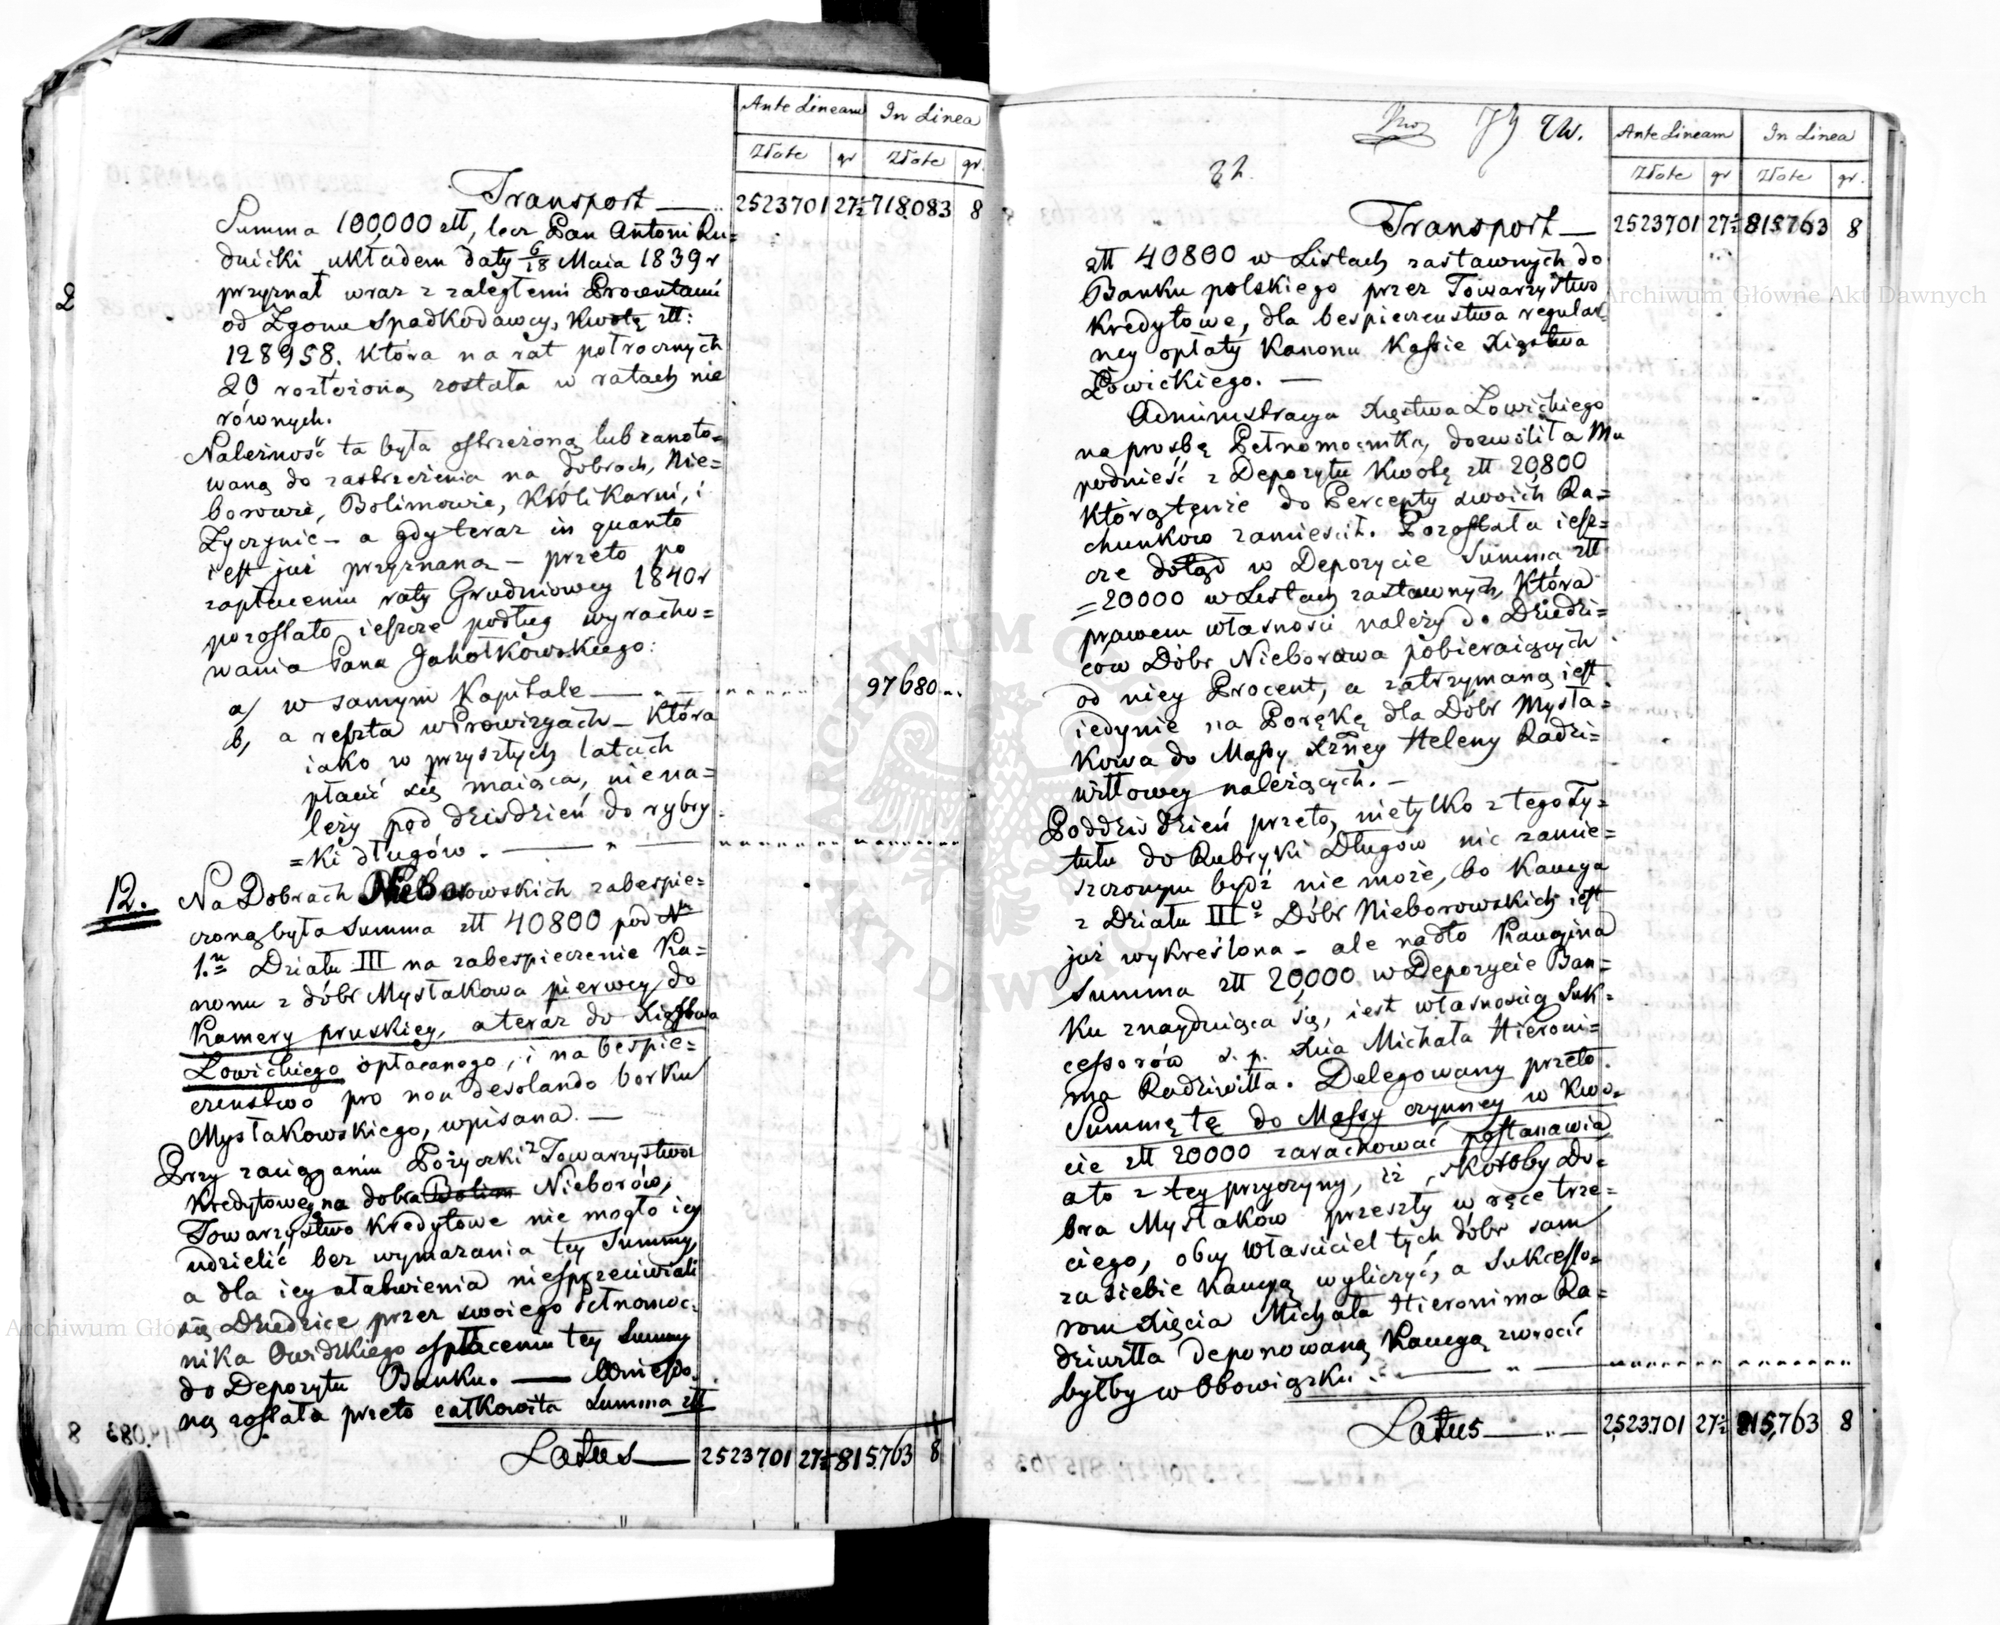 Ante Lineam In Linea
Złote gr Złote gr.
Transport 2523701 27½ 718,083 8
Summa 100,000 złł, lecz Pan Antoni Ru=
dnicki układem daty 6/18 Maia 1839 r
przyznał wraz z zaległemi Procentami
od Zgonu Spadkodawcy, Kwotę złł:
128958. Która na rat półrocznych
20 rozłożoną została w ratach nie
równych.
Należność ta była ostrzeżoną lub zanoto=
waną do zastrzeżenia na dobrach, Nie=
borowie, Bolimowie, Królikarni, i
Życzynie – a gdy teraz in quanto
iest już przyznaną – przeto po
zapłaceniu raty Grudniowey 1840 r
pozostało ieszcze podług wyracho=
wania Pana Jakołkowskiego:
a/ w samym Kapitale 97680
b, a reszta w Prowizyach – Która
iako w przyszłych latach
płacić się maiąca, niena=
leży pod dziśdzień do rybry
=ki długów.
12. Na Dobrach Nieborowskich zabespie=
czoną była Summa złł 40800 pod Nr
1.m Działu III na zabespieczenie Ka=
nonu z dóbr Mysłakowa pierwey do
Kamery pruskiey, a teraz do Xięstwa
Łowickiego opłacanego, i na bespie=
czenstwo pro non desolando borku
Mysłakowskiego, wpisana. —
Przy zaciąganiu Pożyczki z Towarzystwa
Kredytowego na dobra Bolim Nieborów,
Towarzystwo Kredytowe nie mogło iey
udzielić bez wymazania tey Summy,
a dla iey ułatwienia niesprzeciwiali
się Dziedzice przez swoiego Pełnomoc=
nika Owidzkiego spłaceniu tey Summy
do Depozytu Banku. — Wniesio=
ną została przeto całkowita Summa złł
Latus 2523701 27½ 815,763 8
Ante Lineam In Linea
Złote gr Złote gr.
Transport 2523701 27½ 815763 8
złł 40800 w Listach zastawnych do
Banku polskiego przez Towarzystwo
Kredytowe, dla bespieczenstwa regular=
ney opłaty Kanonu Kassie Xięstwa
Łowickiego. —
Administracya Xięstwa Łowickiego
na prośbę Pełnomocnika, dozwoliła Mu
podnieść z Depozytu Kwotę złł 20,800
Którą tenże do Percepty swoich Ra=
chunków zamieścił. Pozostała iesz=
cze dotąd w Depozycie Summa złł
=20000 w Listach zastawnych, Która
prawem własności należy do Dziedzi=
ców Dóbr Nieborowa pobieraiących
od niey Procent, a zatrzymaną iest
iedynie na Porękę dla Dóbr Mysła=
Kowa do Massy Xżney Heleny Radzi=
wiłłowey należących. —
Poddziśdzień przeto, nietylko z tego Ty=
tułu do Rubryki Długów nic zamie=
szczonym bydź nie może, bo Kaucya
z Działu III° Dóbr Nieborowskich iest
już wykreślona – ale nadto Kaucyina
Summa złł 20,000 w Depozycie Ban=
ku znayduiąca się, iest własnością Suk=
cessorów ś. p. Xcia Michała Hieroni=
ma Radziwiłła. Delegowany przeto
Summę tę do Massy czynney w Kwo=
cie złł 20000 zarachować postanawia
a to z tey przyczyny, iż, skoroby Do=
bra Mysłaków przeszły w ręce trze=
ciego, obcy Właściciel tych dóbr sam
za siebie Kaucyą wyliczyć, a Sukcesso=
rom Xięcia Michała Hieronima Ra=
dziwiłła deponowaną Kaucyą zwrócić
byłby w Obowiązku.
Latus 2,523,701 27½ 815,763 8
Archiwum Główne Akt Dawnych
Archiwum Główne Akt Dawnych
ARCHIWUM GŁÓWNE AKT DAWNYCH